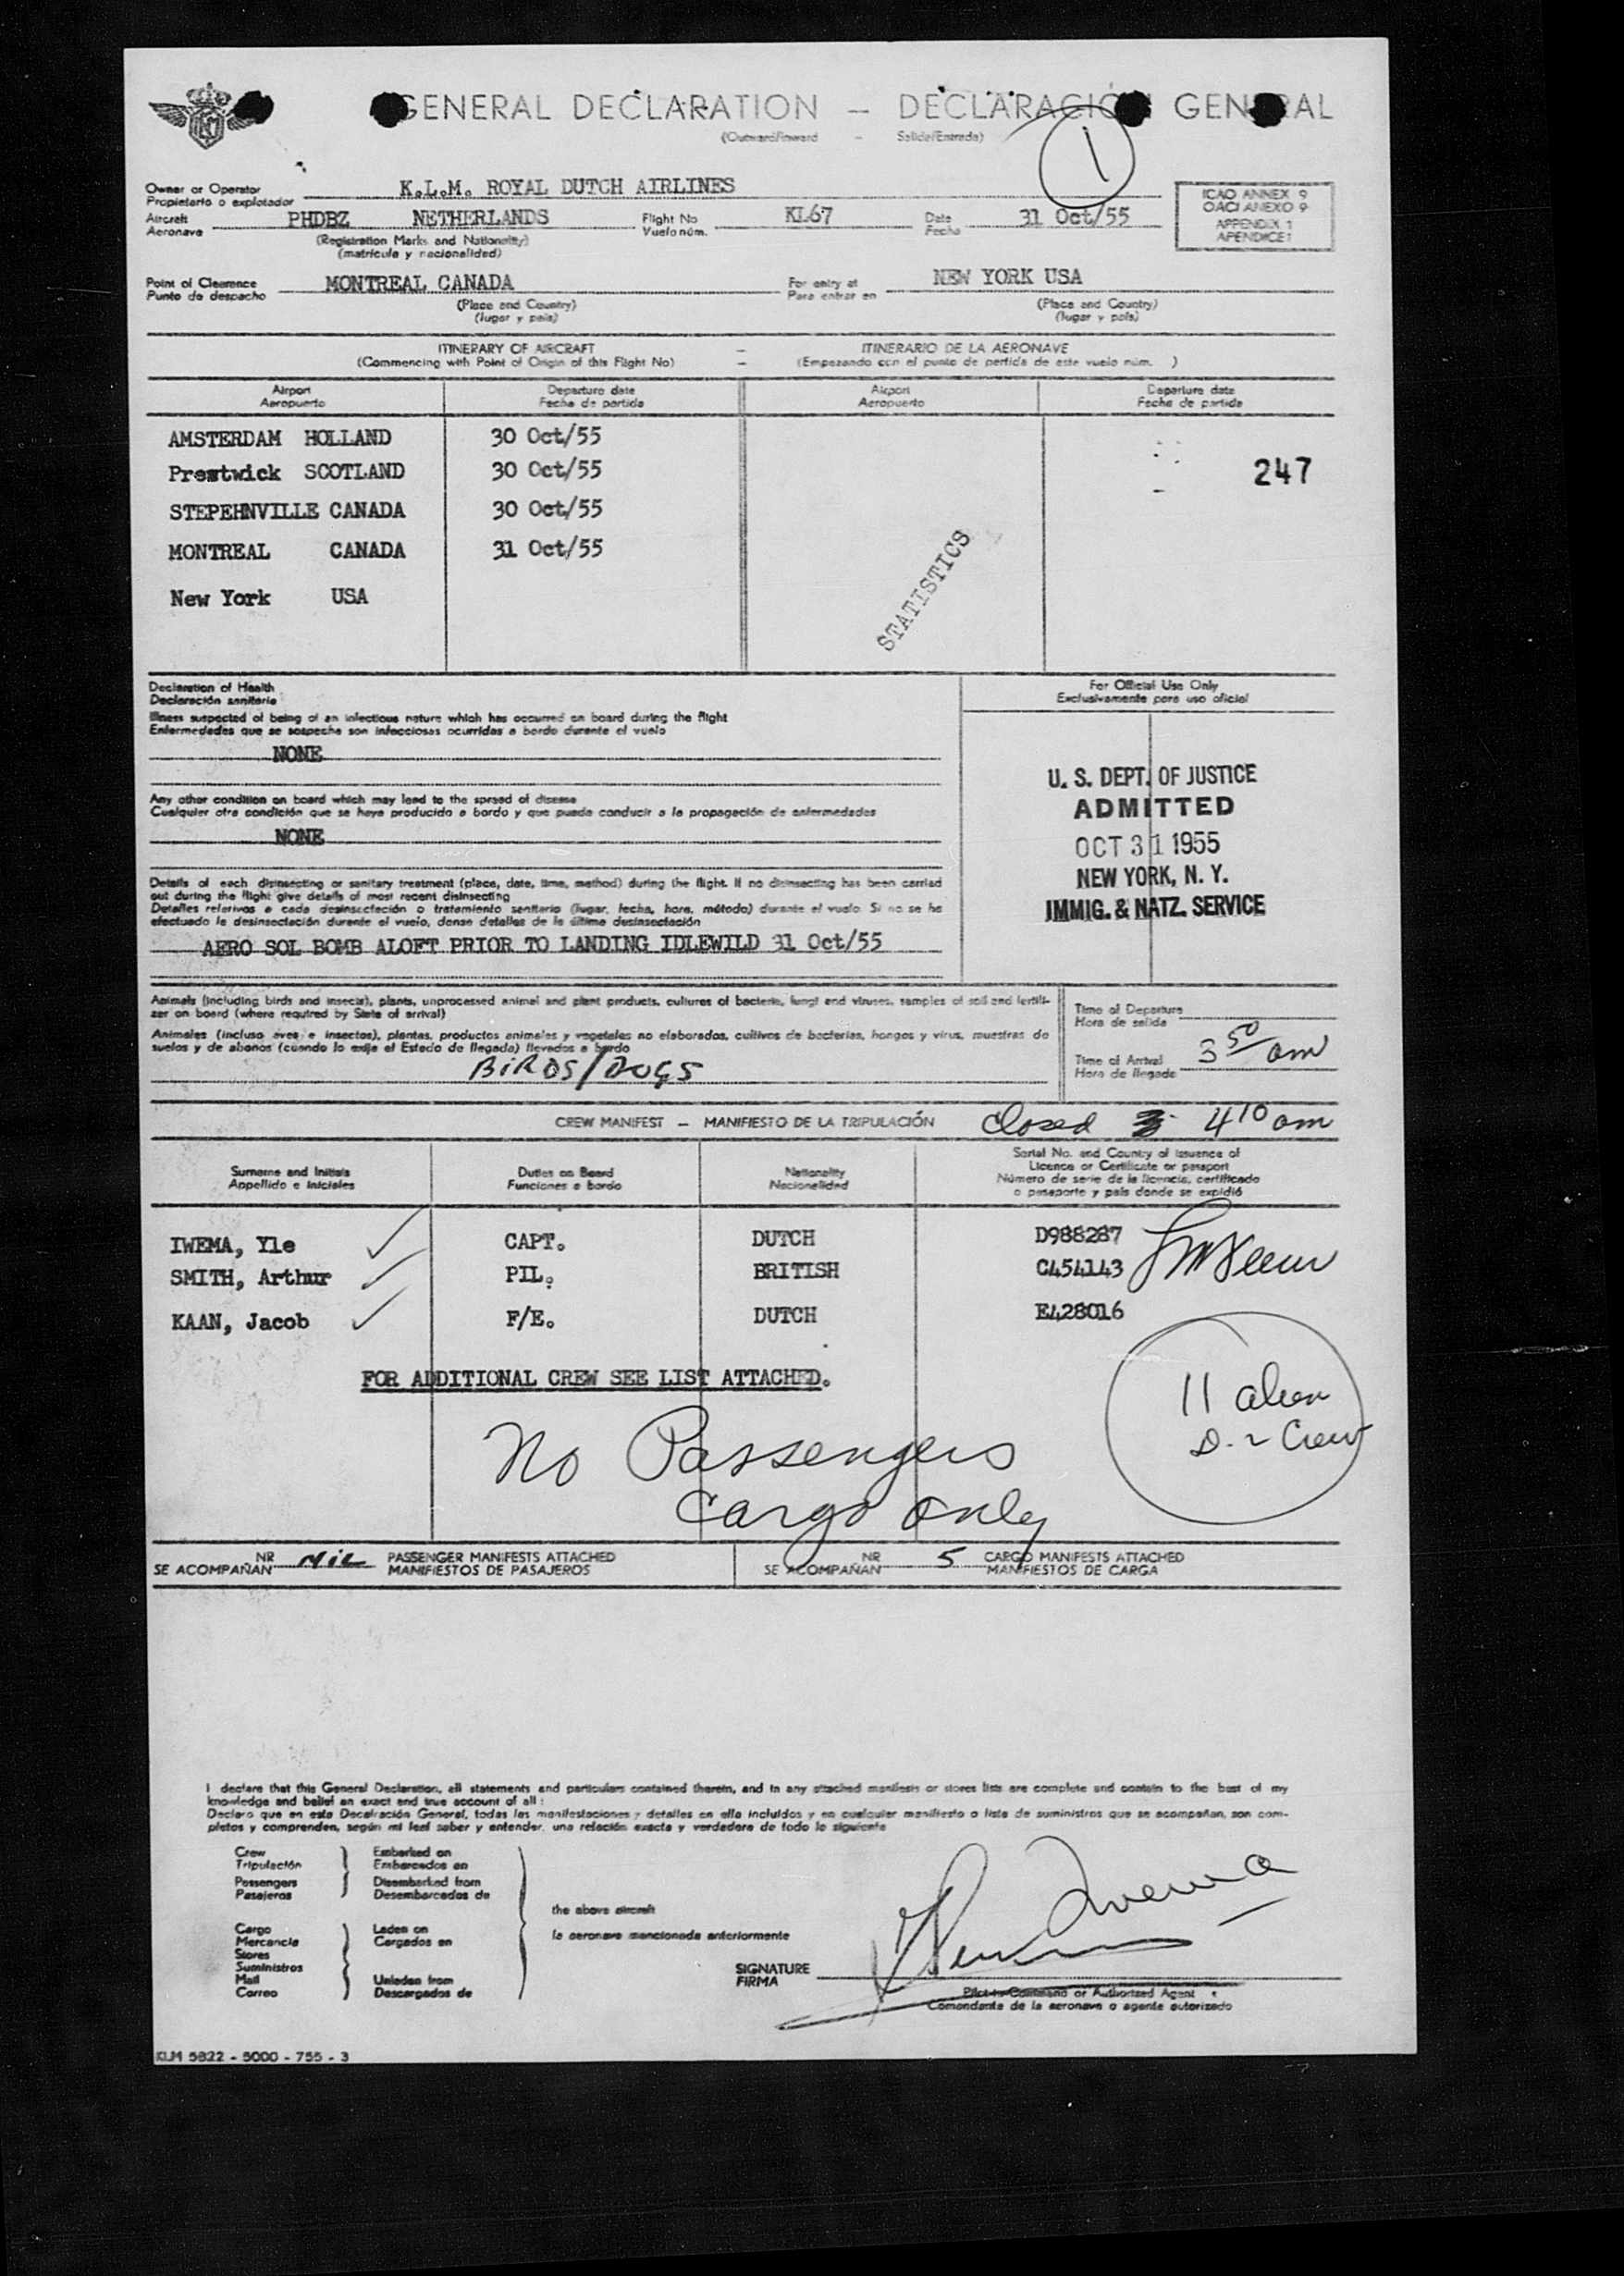 GENERAL DECLARATION – DECLARACIÓN GENERAL
(Outward/Inward – Salida/Entrada)
1
Owner or Operator K.L.M. ROYAL DUTCH AIRLINES
Propietario o explotador
Aircraft PHDBZ NETHERLANDS Flight No KL67 Date 31 Oct/55
Aeronave Vuelo núm. Fecha
(Registration Marks and Nationality)
(matrícula y nacionalidad)
ICAO ANNEX 9
OACI ANEXO 9
APPENDIX 1
APENDICE 1
Point of Clearance MONTREAL CANADA For entry at NEW YORK USA
Punto de despacho Para entrar en
(Place and Country) (Place and Country)
(lugar y país) (lugar y país)
ITINERARY OF AIRCRAFT – ITINERARIO DE LA AERONAVE
(Commencing with Point of Origin of this Flight No) – (Empezando con el punto de partida de este vuelo núm. )
Airport Departure date Airport Departure date
Aeropuerto Fecha de partida Aeropuerto Fecha de partida
AMSTERDAM HOLLAND 30 Oct/55
Prestwick SCOTLAND 30 Oct/55 247
STEPEHNVILLE CANADA 30 Oct/55
MONTREAL CANADA 31 Oct/55
New York USA
STATISTICS
Declaration of Health
Declaración sanitaria
Illness suspected of being of an infectious nature which has occurred on board during the flight
Enfermedades que se sospecha son infecciosas ocurridas a bordo durante el vuelo
NONE
Any other condition on board which may lead to the spread of disease
Cualquier otra condición que se haya producido a bordo y que pueda conducir a la propagación de enfermedades
NONE
Details of each disinsecting or sanitary treatment (place, date, time, method) during the flight. If no disinsecting has been carried
out during the flight give details of most recent disinsecting
Detalles relativos a cada desinsectación o tratamiento sanitario (lugar, fecha, hora, método) durante el vuelo. Si no se ha
efectuado la desinsectación durante el vuelo, dense detalles de la última desinsectación
AERO SOL BOMB ALOFT PRIOR TO LANDING IDLEWILD 31 Oct/55
For Official Use Only
Exclusivamente para uso oficial
U. S. DEPT. OF JUSTICE
ADMITTED
OCT 31 1955
NEW YORK, N. Y.
IMMIG. & NATZ. SERVICE
Animals (including birds and insects), plants, unprocessed animal and plant products, cultures of bacteria, fungi and viruses, samples of soil and fertili-
zer on board (where required by State of arrival)
Animales (incluso aves e insectos), plantas, productos animales y vegetales no elaborados, cultivos de bacterias, hongos y virus, muestras de
suelos y de abonos (cuando lo exija el Estado de llegada) llevados a bordo
BIRDS/DOGS
Time of Departure
Hora de salida
Time of Arrival 3 50 am
Hora de llegada
CREW MANIFEST – MANIFIESTO DE LA TRIPULACIÓN Closed 4 10 am
Surname and Initials Duties on Board Nationality Serial No. and Country of issuance of
Appellido e Iniciales Funciones a bordo Nacionalidad Licence or Certificate or passport
Número de serie de la licencia, certificado
o pasaporte y país donde se expidió
IWEMA, Yle CAPT. DUTCH D988287
SMITH, Arthur PIL. BRITISH C454143
KAAN, Jacob F/E. DUTCH E428016
FOR ADDITIONAL CREW SEE LIST ATTACHED.
11 alien
D-2 Crew
No Passengers
Cargo only
NR NIL PASSENGER MANIFESTS ATTACHED NR 5 CARGO MANIFESTS ATTACHED
SE ACOMPAÑAN MANIFIESTOS DE PASAJEROS SE ACOMPAÑAN MANIFIESTOS DE CARGA
I declare that this General Declaration, all statements and particulars contained therein, and in any attached manifests or stores lists are complete and contain to the best of my
knowledge and belief an exact and true account of all :
Declaro que en esta Decalración General, todas las manifestaciones y detalles en ella incluídos y en cualquier manifiesto o lista de suministros que se acompañan, son com-
pletos y comprenden, según mi leal saber y entender, una relación exacta y verdadera de todo lo siguiente
Crew Embarked on
Tripulación Embarcados en
Passengers Disembarked from
Pasajeros Desembarcados de
the above aircraft
Cargo Laden on
Mercancía Cargados en la aeronave mencionada anteriormente
Stores
Suministros
Mail Unladen from
Correo Descargados de
SIGNATURE
FIRMA
Pilot-in-Command or Authorized Agent
Comandante de la aeronave o agente autorizado
KLM 5822 - 5000 - 755 - 3